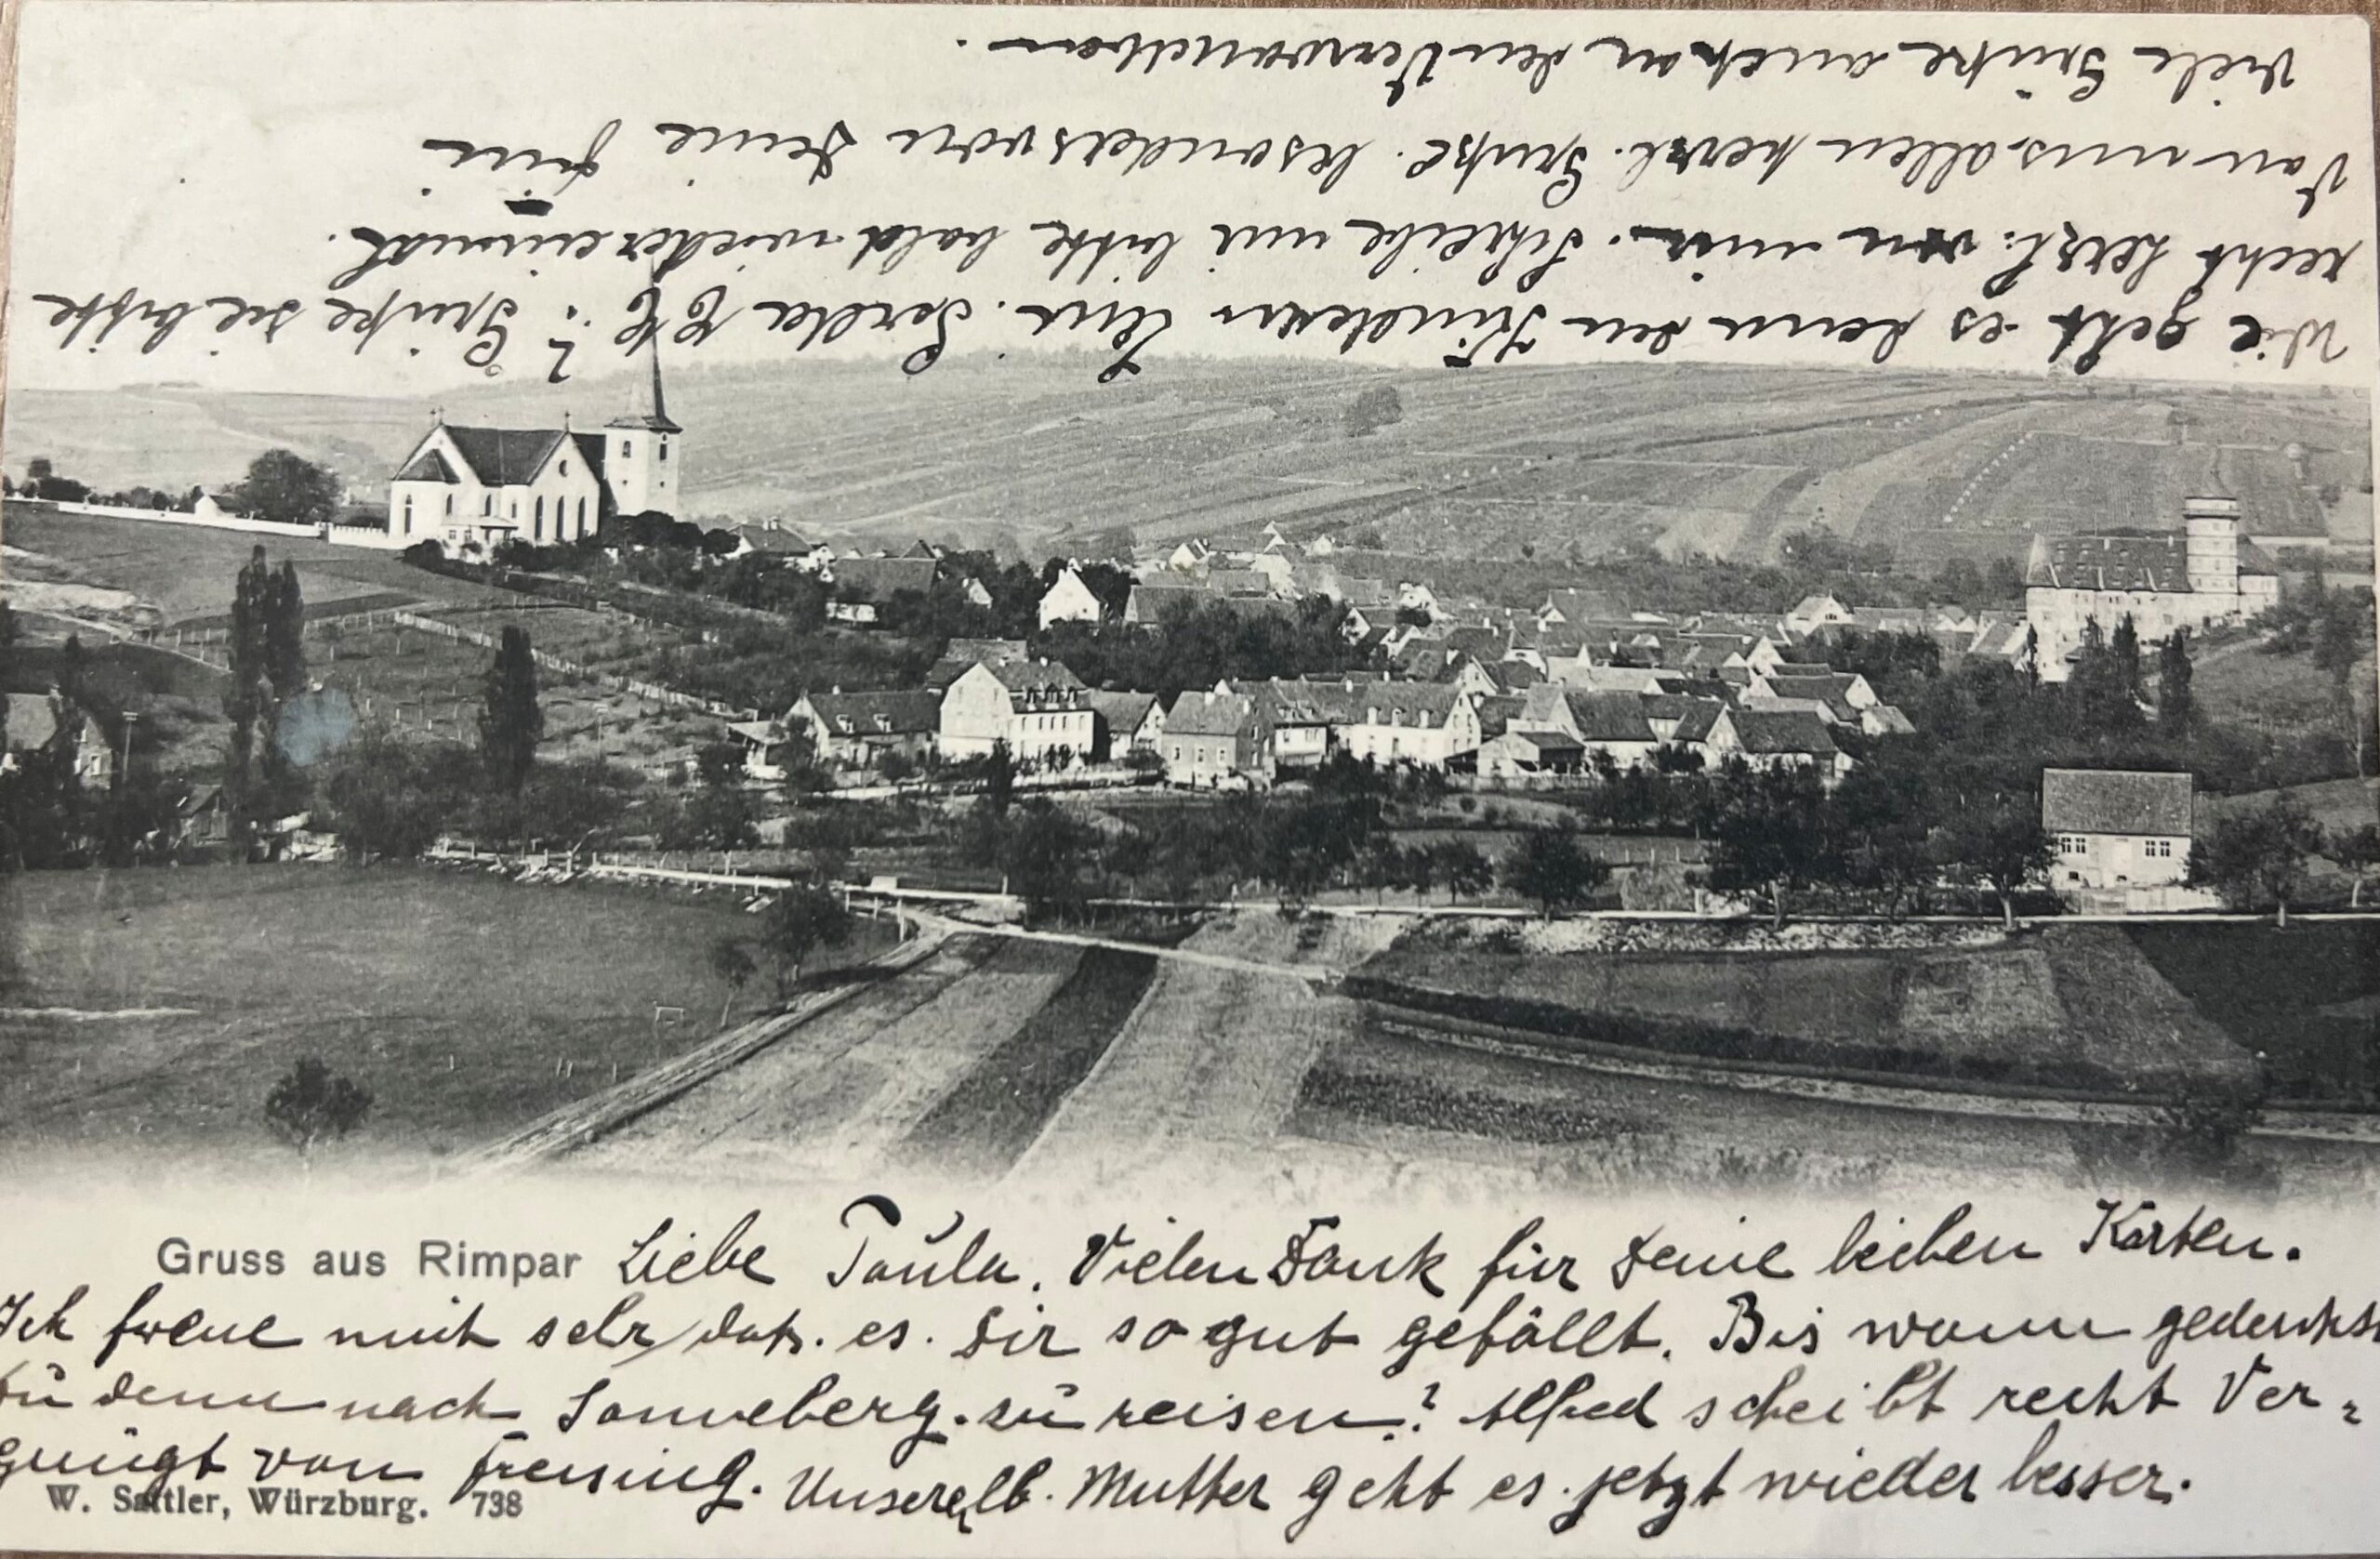 Gruss aus Rimpar Liebe Paula. Vielen Dank für Deine lieben Karten.
Ich freue mich sehr, daß es Dir so gut gefällt. Bis wann gedenkst
Du denn nach Sonneberg zu reisen? Alfred scheibt recht Ver=
gnügt von Freising. Unserer lb. Mutter geht es jetzt wieder besser.
W. Sattler, Würzburg. 738
Wie geht es denn den Kindern Gerda ? Grüße sie bitte
recht herzl. von mir. Schreibe mir bitte bald wieder einmal.
Von uns allen herzl. Grüße. besonders von Deine
Viele Grüße auch an den Verwandten.